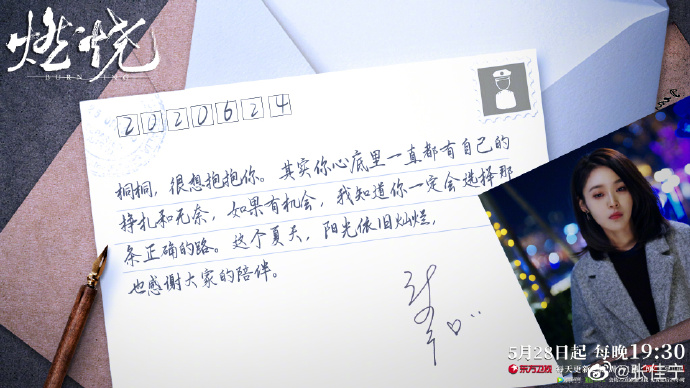 燃烧
BURNING
2020624
桐桐，很想抱抱你。其实你心底里一直都有自己的
挣扎和无奈，如果有机会，我知道你一定会选择那
条正确的路。这个夏天，阳光依旧灿烂，
也感谢大家的陪伴。
5月28日起 每晚19:30
东方卫视
@张佳宁